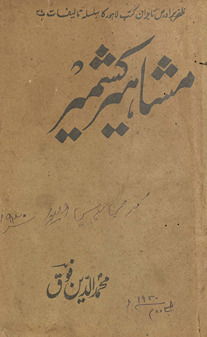 ظفر برادرس تاجران کتب لاہور کا سلسلہ تالیفات
مشاہیر کشمیر
۱۹۳۰
محمد الدین فوق
۱۹۳۰